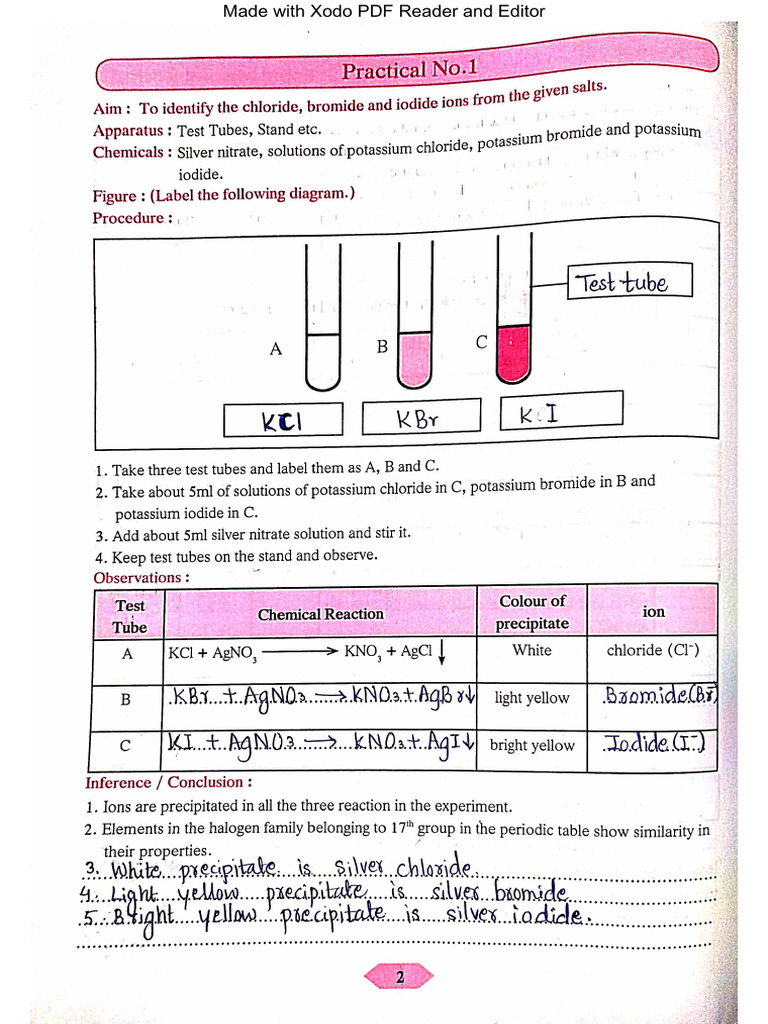 Made with Xodo PDF Reader and Editor
Practical No.1
Aim : To identify the chloride, bromide and iodide ions from the given salts.
Apparatus : Test Tubes, Stand etc.
Chemicals : Silver nitrate, solutions of potassium chloride, potassium bromide and potassium
iodide.
Figure : (Label the following diagram.)
Procedure :
Test tube
A
B
C
KCl
KBr
KI
1. Take three test tubes and label them as A, B and C.
2. Take about 5ml of solutions of potassium chloride in C, potassium bromide in B and
potassium iodide in C.
3. Add about 5ml silver nitrate solution and stir it.
4. Keep test tubes on the stand and observe.
Observations :
Test Tube | Chemical Reaction | Colour of precipitate | ion
A | KCl + AgNO₃ ⟶ KNO₃ + AgCl ↓ | White | chloride (Cl⁻)
B | KBr + AgNO₃ ⟶ KNO₃ + AgBr↓ | light yellow | Bromide (Br⁻)
C | KI + AgNO₃ ⟶ KNO₃ + AgI↓ | bright yellow | Iodide (I⁻)
Inference / Conclusion :
1. Ions are precipitated in all the three reaction in the experiment.
2. Elements in the halogen family belonging to 17th group in the periodic table show similarity in
their properties.
3. White precipitate is silver chloride.
4. Light yellow precipitate is silver bromide
5. Bright yellow precipitate is silver iodide.
2